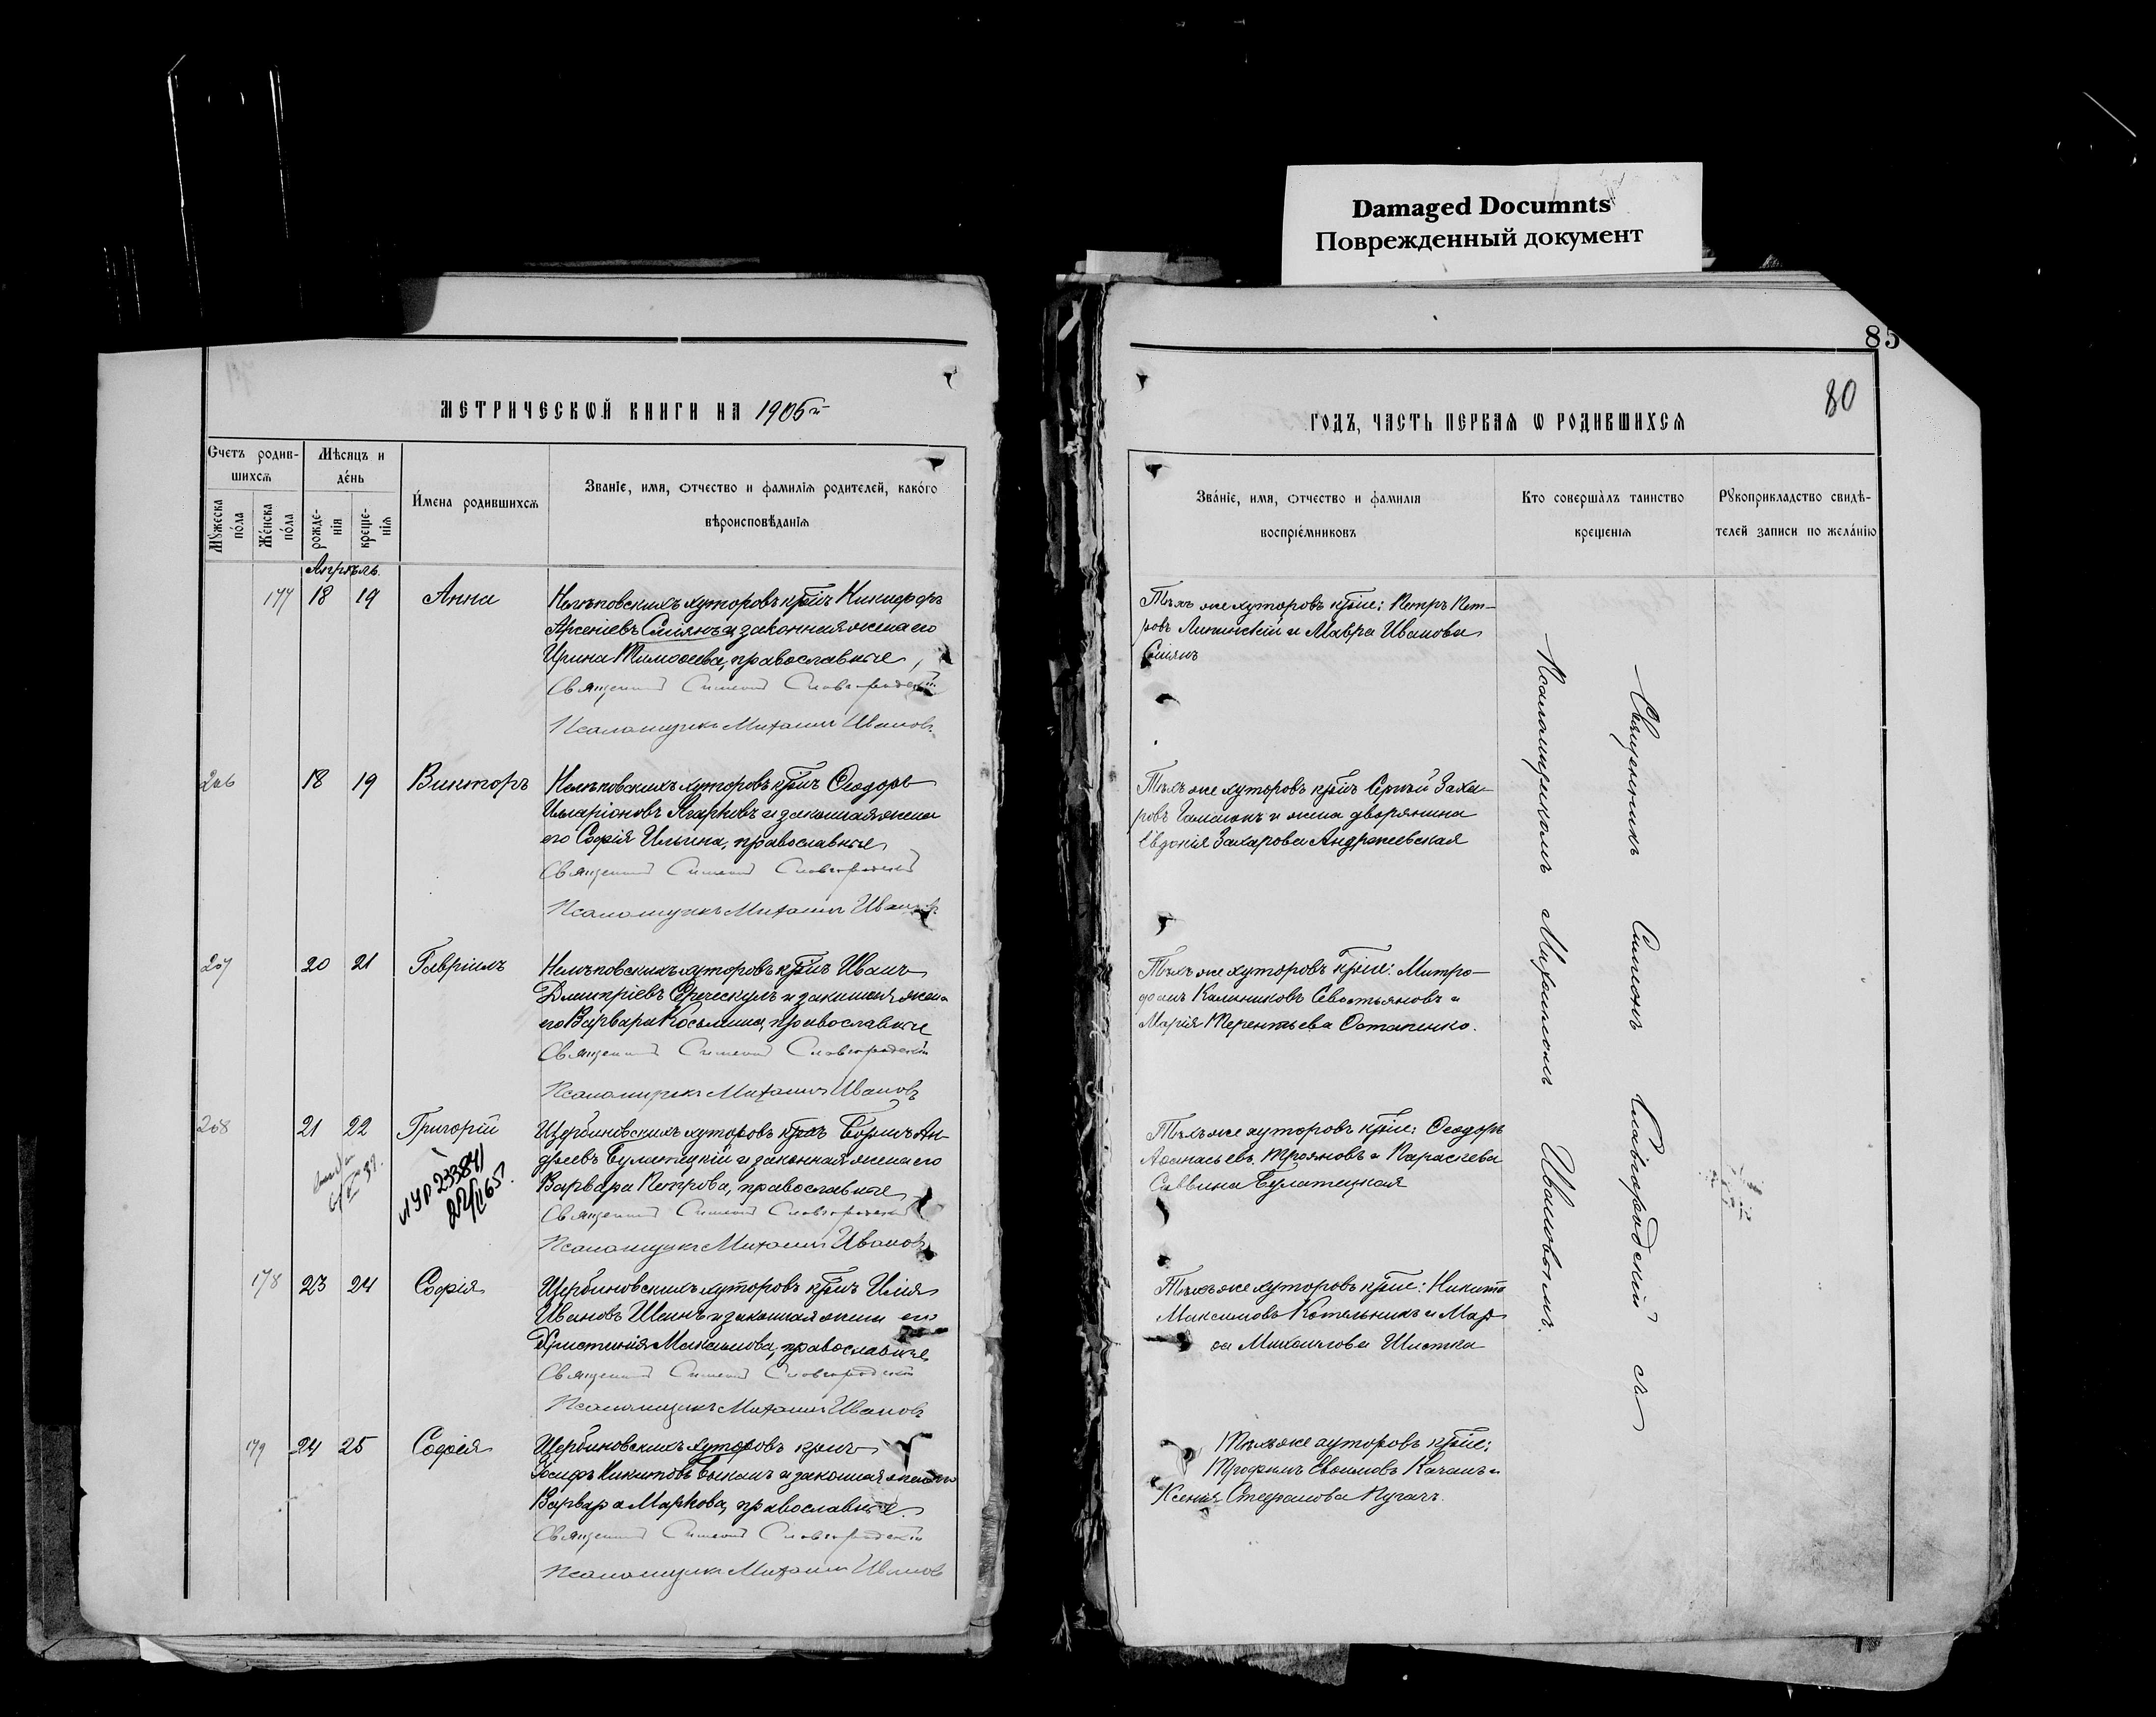 Damaged Documnts
Поврежденный документ
85
80
МЕТРИЧЕСКОЙ КНИГИ НА 1905й
ГОДЪ, ЧАСТЬ ПЕРВАЯ Ѡ РОДИВШИХСЯ
Счетъ родив-
шихсѧ
Мꙋжеска
по́ла
Же́нска
по́ла
Мѣсяцъ и
де́нь
рожде-
нїя
креще-
нїѧ
И́мена родившихсѧ
Званїе, имя, ѡтчество и фамилїѧ родителей, како́го
вѣроисповѣданїѧ
Зва́нїе, имя, ѡтчество и фамилїя
воспрїе́мниковъ
Кто соверша̀лъ таинство
крещенїѧ
Рꙋкоприкладство свидѣ-
телей записи по жела́нїю
Апрѣль.
177 18 19 Анна
хуторовъ крїнъ Никифоръ
Арсеніевъ Сміянъ и законная жена его
Ирина Тимоѳеева, православные
Священникъ Симеонъ Славгородскій
Псаломщикъ Михаилъ Ивановъ
Тѣхъ же хуторовъ крїне: Петръ Пет-
ровъ Липинскій и Мавра Иванова
Сміянъ
206 18 19 Викторъ
хуторовъ крїнъ Ѳеодоръ
Иларіоновъ и законная жена
его Софія Ильина, православные
Священникъ Симеонъ Славгородскій
Псаломщикъ Михаилъ Ивановъ
Тѣхъ же хуторовъ крїнъ Сергѣй Заха-
ровъ и жена дворянина
Евдокія Захарова Андржеевская
207 20 21 Гавріилъ
хуторовъ крїнъ Иванъ
Дмитріевъ и законная жена
его Варвара Косьмина, православные
Священникъ Симеонъ Славгородскій
Псаломщикъ Михаилъ Ивановъ
Тѣхъ же хуторовъ крїне: Митро-
фанъ Калениковъ Севостьяновъ и
Марія Терентьева Остапенко.
208 21 22 Григорій
Щербиновскихъ хуторовъ крїнъ Борисъ Ан-
дреевъ Булатецкій и законная жена его
Варвара Петрова, православные
Священникъ Симеонъ Славгородскій
Псаломщикъ Михаилъ Ивановъ
Тѣхъ же хуторовъ крїне: Ѳеодоръ
Аѳанасьевъ Трояновъ и Параскева
Саввина Булатецкая
178 23 24 Софія
Щербиновскихъ хуторовъ крїнъ Илія
Ивановъ и законная жена его
Христинія Максимова, православные
Священникъ Симеонъ Славгородскій
Псаломщикъ Михаилъ Ивановъ
Тѣхъ же хуторовъ крїне: Никита
Максимовъ Котельникъ и Мар-
ѳа Михаилова
179 24 25 Софія
Щербиновскихъ хуторовъ крїнъ
Іосифъ Никитовъ Быканъ и законная жена его
Варвара Маркова, православные.
Священникъ Симеонъ Славгородскій
Псаломщикъ Михаилъ Ивановъ
Тѣхъ же хуторовъ крїне:
Трофимъ Качанъ и
Ксенія Стефанова Пугачъ.
Священникъ Симеонъ Славгородскій съ
Псаломщикомъ Михаиломъ Ивановымъ.